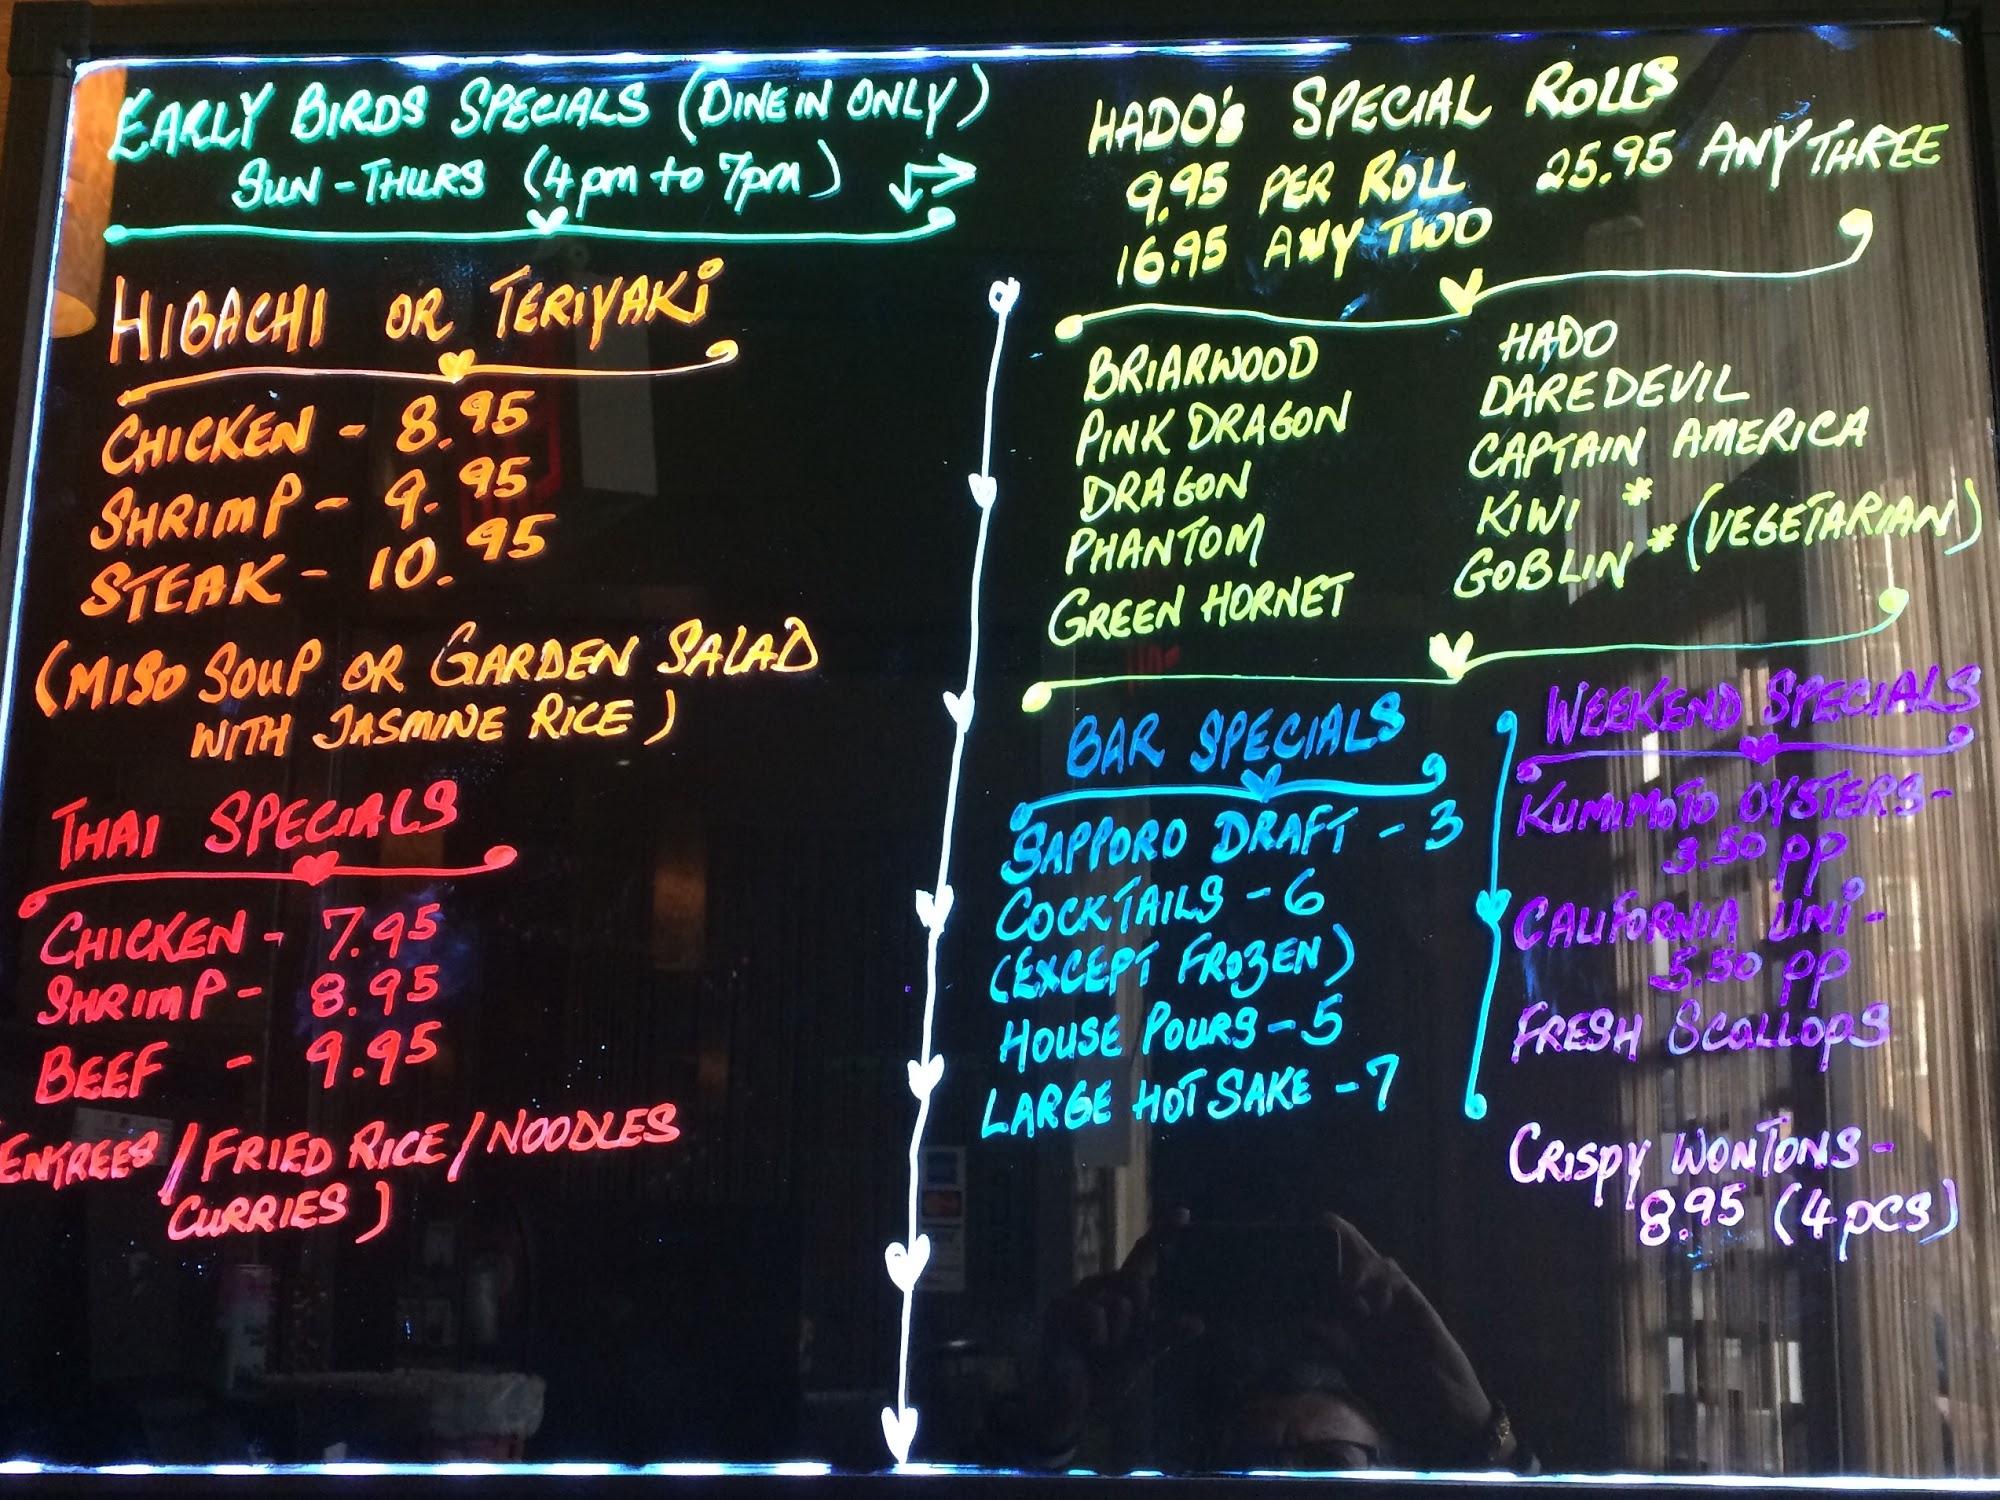 EARLY BIRDS SPECIALS (DINE IN ONLY)
SUN - THURS (4pm to 7pm)
HIBACHI OR TERIYAKI
CHICKEN - 8.95
SHRIMP - 9.95
STEAK - 10.95
(MISO SOUP OR GARDEN SALAD
WITH JASMINE RICE)
THAI SPECIALS
CHICKEN - 7.95
SHRIMP - 8.95
BEEF - 9.95
(ENTREES / FRIED RICE / NOODLES
CURRIES)
HADO'S SPECIAL ROLLS
9.95 PER ROLL 25.95 ANY THREE
16.95 ANY TWO
BRIARWOOD
PINK DRAGON
DRAGON
PHANTOM
GREEN HORNET
HADO
DAREDEVIL
CAPTAIN AMERICA
KIWI *
GOBLIN * (VEGETARIAN)
BAR SPECIALS
SAPPORO DRAFT - 3
COCKTAILS - 6
(EXCEPT FROZEN)
HOUSE POURS - 5
LARGE HOT SAKE - 7
WEEKEND SPECIALS
KUMIMOTO OYSTERS -
3.50 pp
CALIFORNIA UNI -
5.50 pp
FRESH SCALLOPS
CRISPY WONTONS -
8.95 (4 pcs)